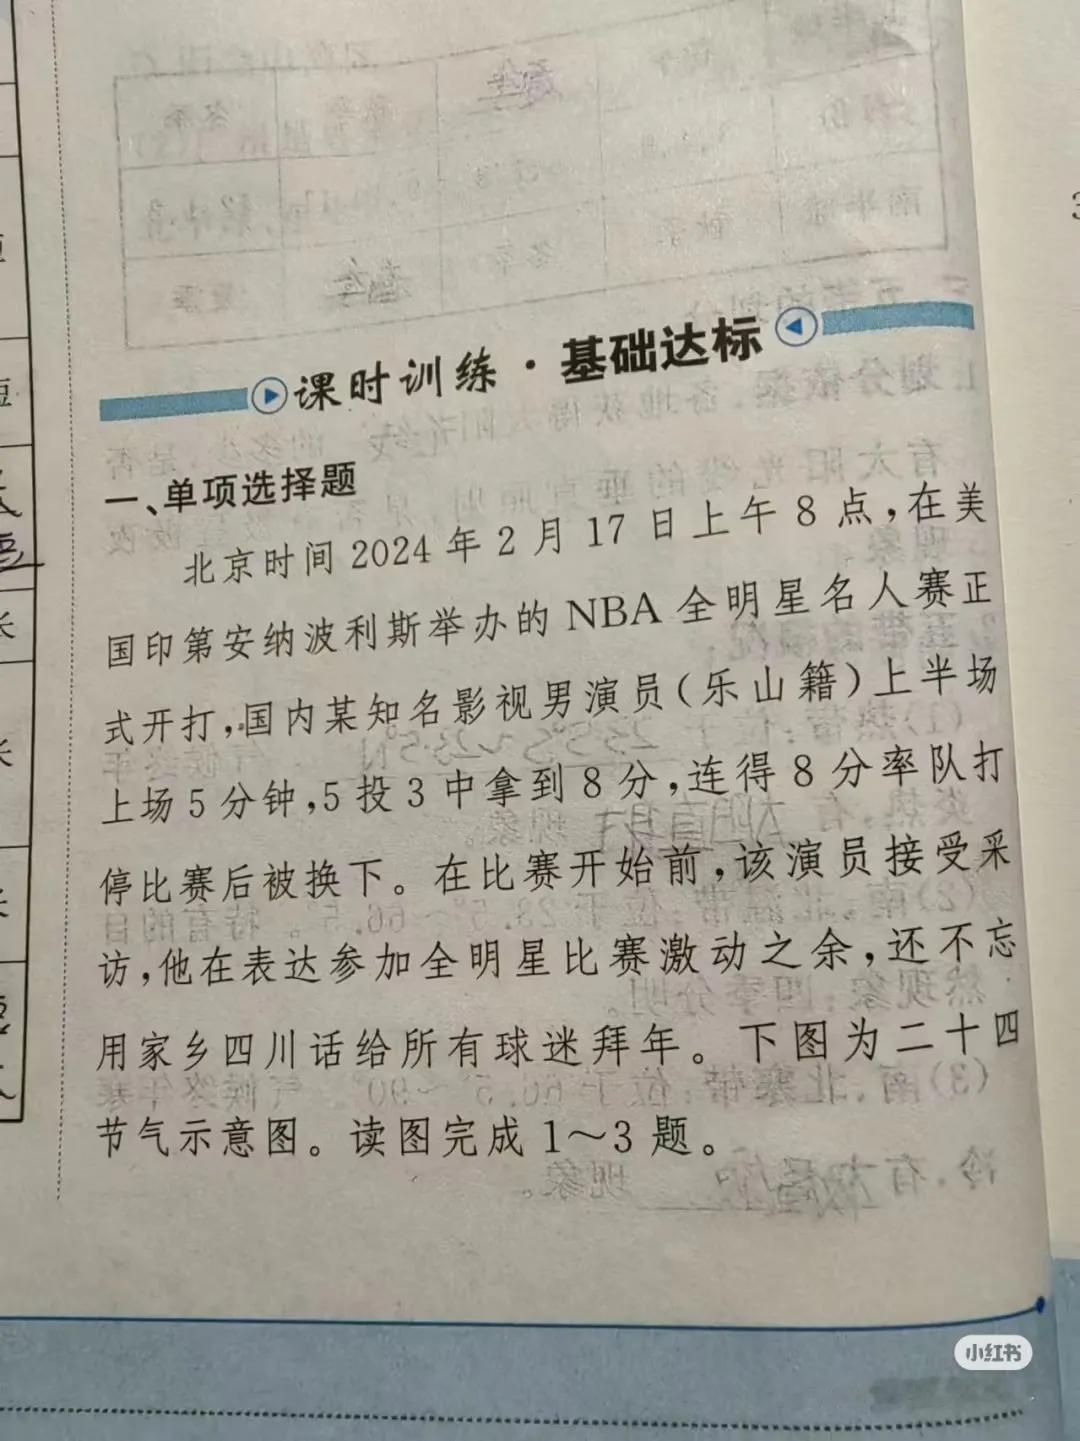 课时训练·基础达标
一、单项选择题
北京时间2024年2月17日上午8点,在美
国印第安纳波利斯举办的NBA全明星名人赛正
式开打,国内某知名影视男演员(乐山籍)上半场
上场5分钟,5投3中拿到8分,连得8分率队打
停比赛后被换下。在比赛开始前,该演员接受采
访,他在表达参加全明星比赛激动之余,还不忘
用家乡四川话给所有球迷拜年。下图为二十四
节气示意图。读图完成1～3题。
小红书